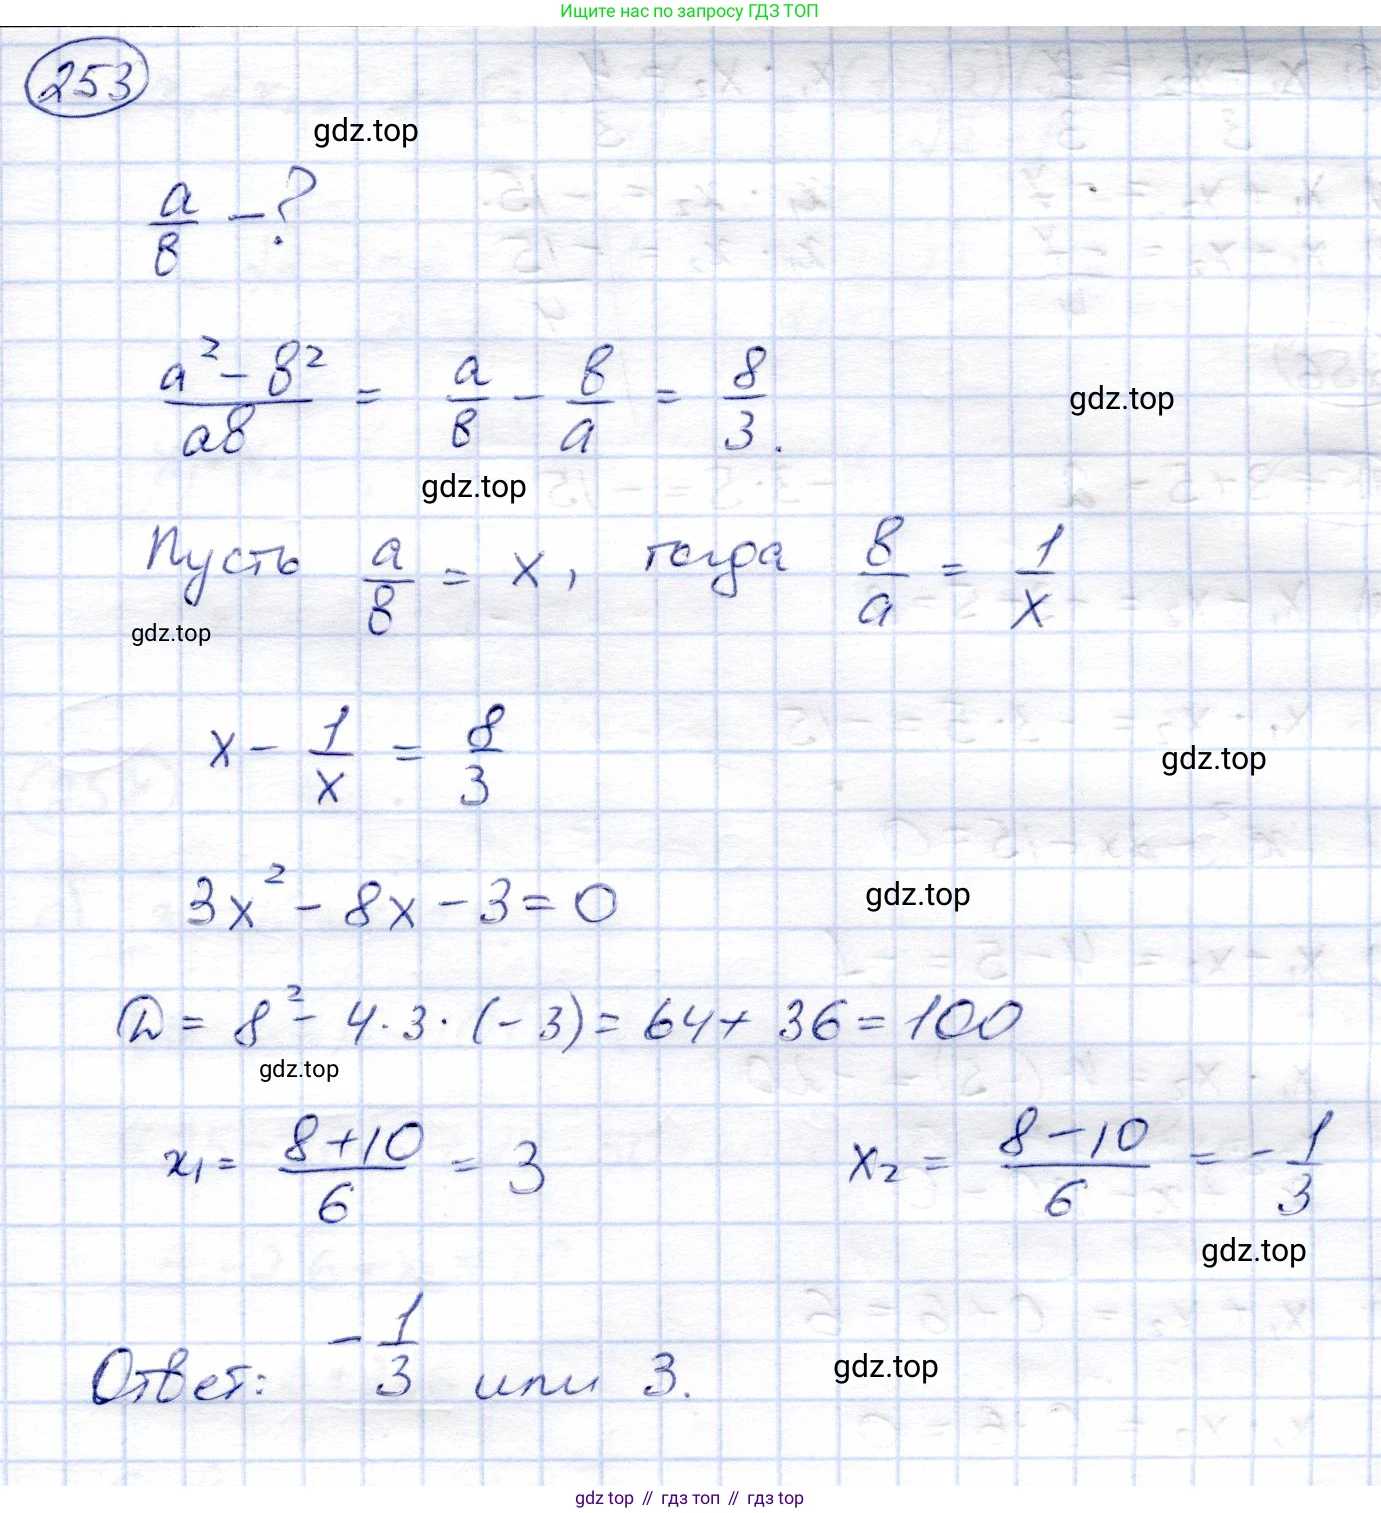 Ищите нас по запросу ГДЗ ТОП
253
gdz.top
a/в - ?
(a² - в²)/(aв) = a/в - в/a = 8/3.
gdz.top
gdz.top
Пусть a/в = x, тогда в/a = 1/x
gdz.top
x - 1/x = 8/3
gdz.top
3x² - 8x - 3 = 0
gdz.top
D = 8² - 4·3·(-3) = 64 + 36 = 100
gdz.top
x₁ = (8+10)/6 = 3 x₂ = (8-10)/6 = -1/3
gdz.top
Ответ: -1/3 или 3.
gdz.top
gdz top // гдз топ // gdz top